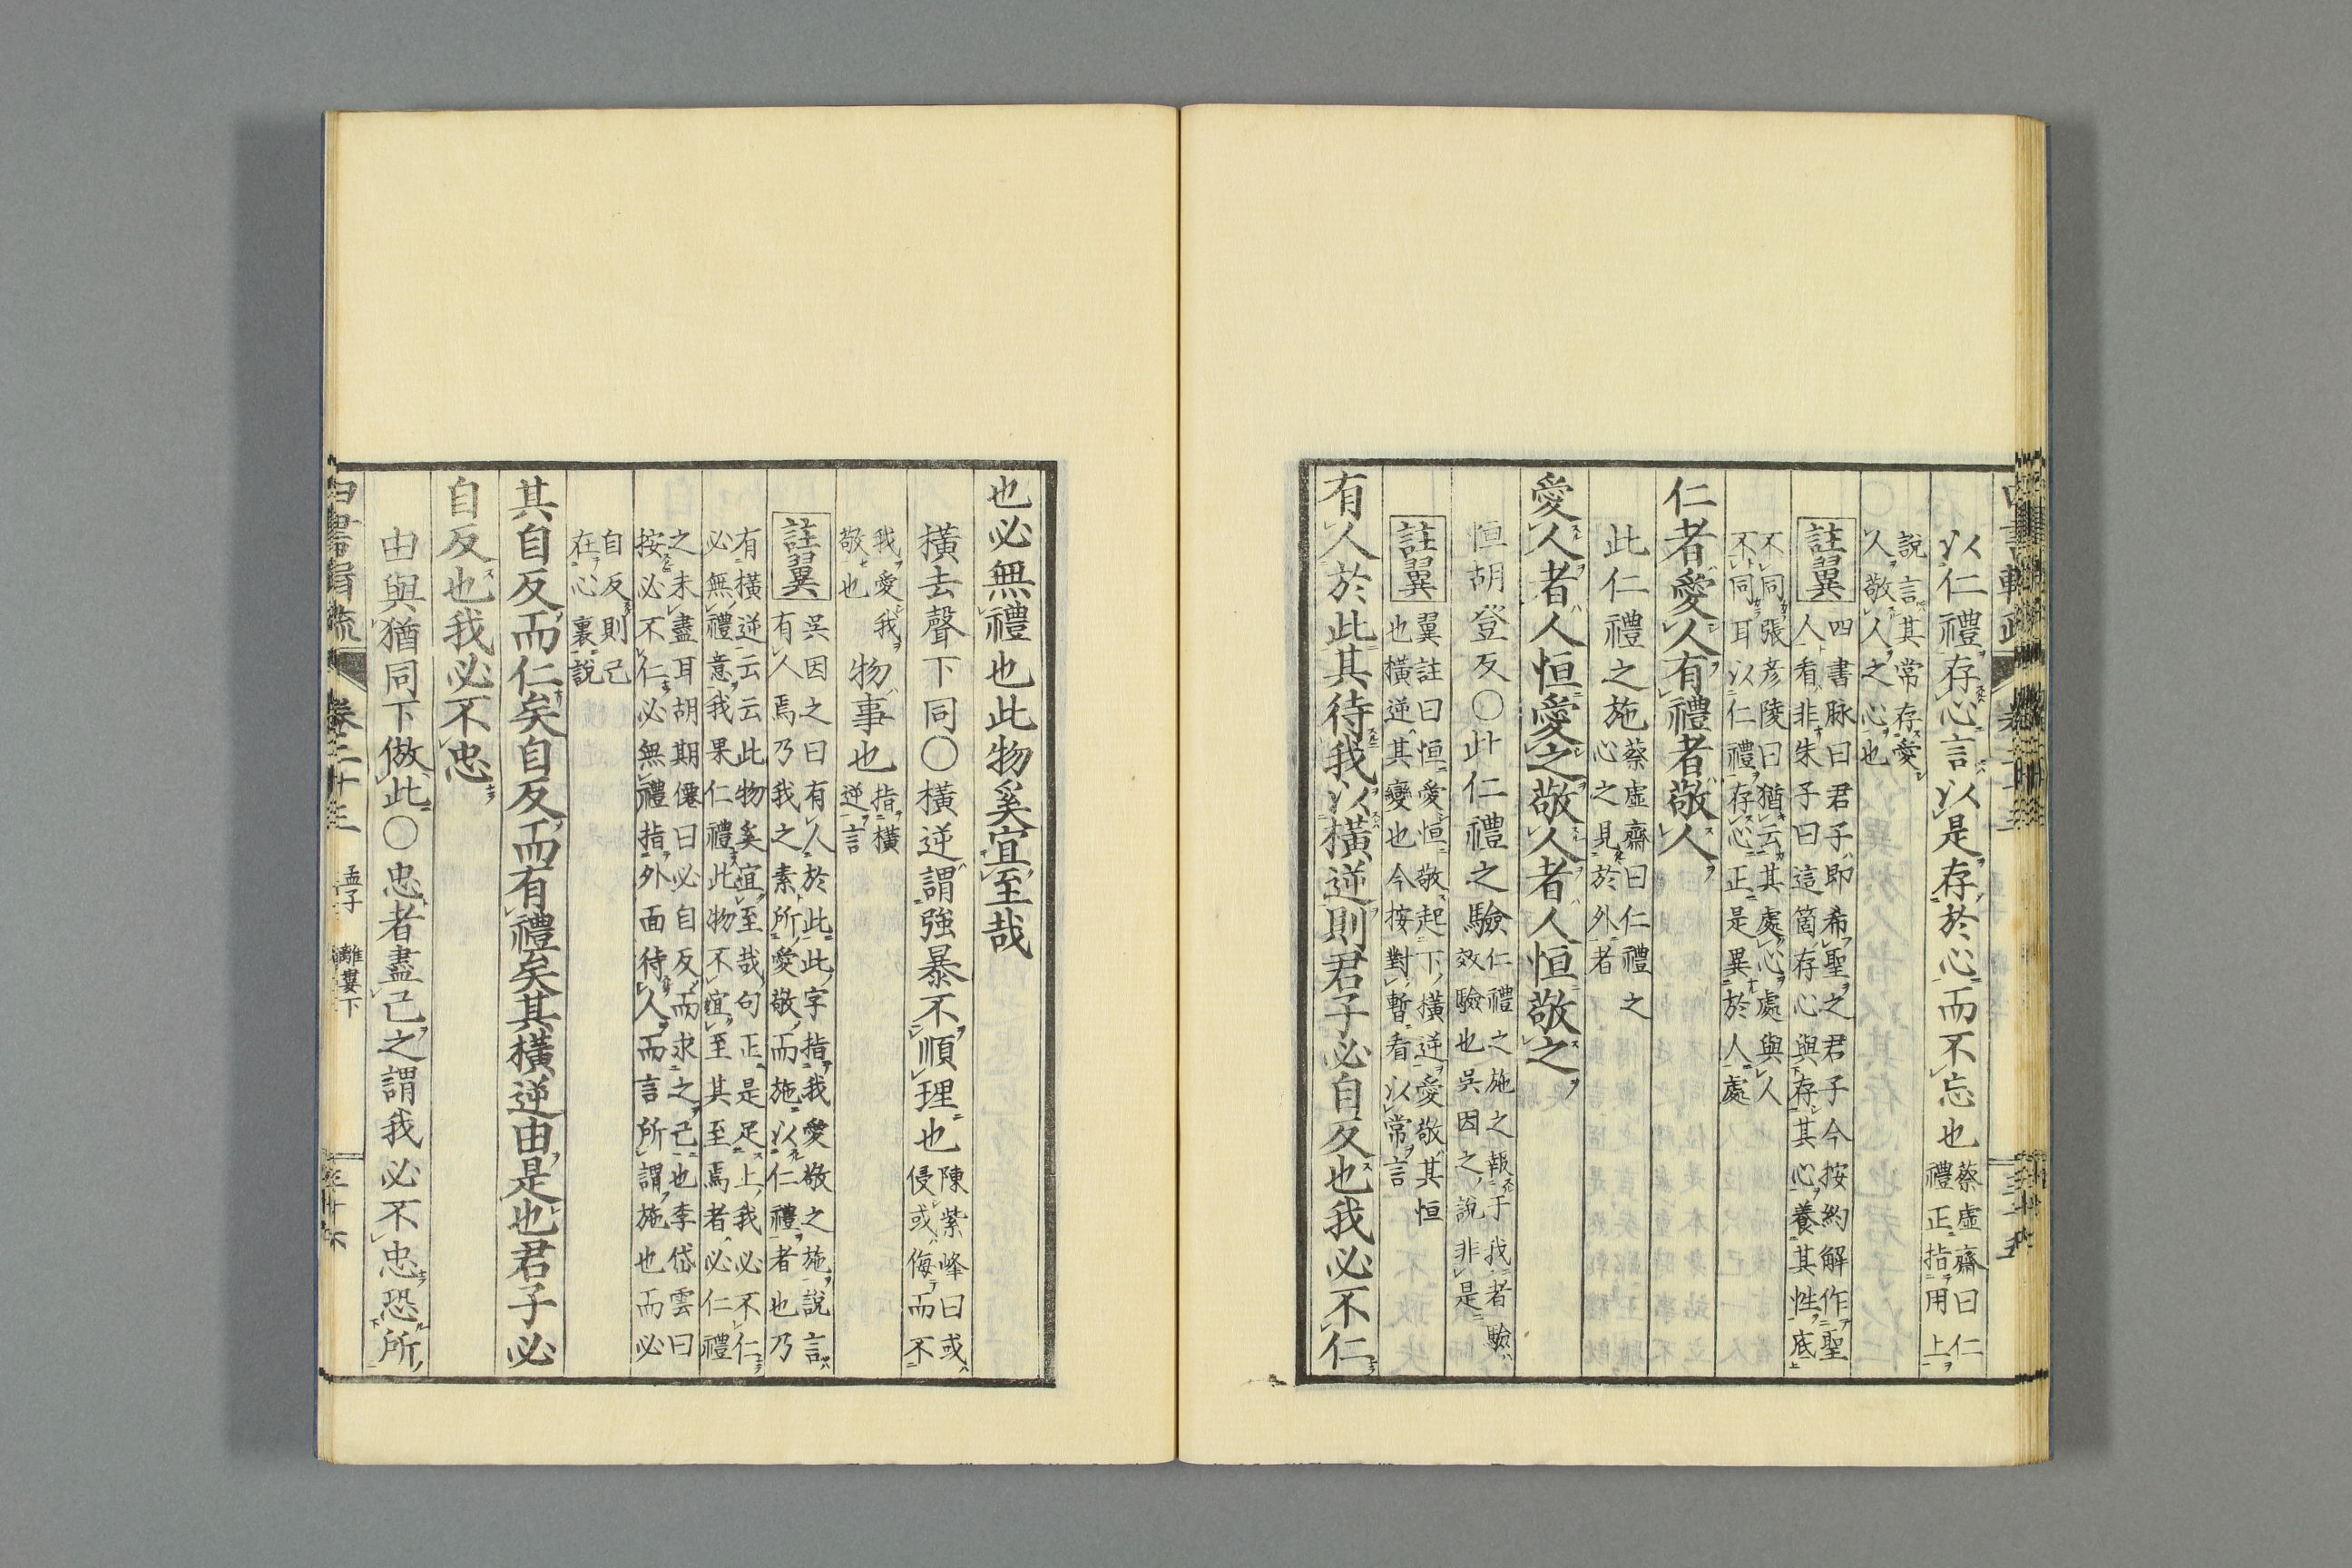 以仁禮存心言以是存於心而不忘也蔡虛齋曰仁
禮正指用上
說言其常存愛
人敬人之心也
註翼四書脉曰君子即希聖之君子今按約解作聖
人看非朱子曰這箇存心與存其心養其性底
不同張彦陵曰猶云其處心處與人
不同耳以仁禮存心正是異於人處
仁者愛人有禮者敬人
此仁禮之施蔡虛齋曰仁禮之
心之見於外者
愛人者人恒愛之敬人者人恒敬之
恒胡登反〇此仁禮之驗仁禮之施之報于我者驗
效驗也吳因之說非是
註翼翼註曰恒愛恒敬起下橫逆愛敬其恒
也橫逆其變也今按對暫看以常言
有人於此其待我以橫逆則君子必自反也我必不仁
也必無禮也此物奚宜至哉
橫去聲下同〇橫逆謂強暴不順理也陳紫峰曰或
侵或侮而不
我愛我
敬也物事也指橫
逆言
註翼吳因之曰有人於此此字指我愛敬之施說言
有人焉乃我之素所愛敬而施以仁禮者也乃
有橫逆云云此物奚宜至哉句正是足上我必不仁
必無禮意我果仁禮此物不宜至其至焉者必仁禮
之未盡耳胡期僊曰必自反而求之己也李岱雲曰
按必不仁必無禮指外面待人而言所謂施也而必
自反則己
在心裏說
其自反而仁矣自反而有禮矣其橫逆由是也君子必
自反也我必不忠
由與猶同下倣此〇忠者盡己之謂我必不忠恐所
卷二十三 孟子 離婁下 三十六